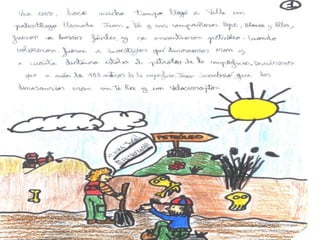 Una vez, hace mucho tiempo llegó a Valle un
paleontólogo llamado Juan, él y sus compañeros Pepe, Blanca y Alba,
fueron a buscar fósiles y se encontraron petróleo. Cuando
volvieron fueron a investigar qué dinosaurios eran y
a cuánta distancia estaba el petróleo de la superficie,
que a más de 101 metros de la superficie. Juan que los
dinosaurios eran un T. Rex y un Velociraptor.
PETRÓLEO